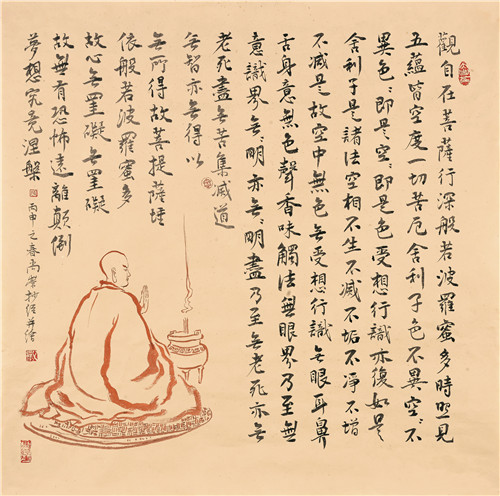 觀自在菩薩行深般若波羅蜜多時照見
五蘊皆空度一切苦厄舍利子色不異空、不
異色、即是空、即是色受想行識亦復如是
舍利子是諸法空相不生不滅不垢不淨不增
不減是故空中無色无受想行識无眼耳鼻
舌身意無色聲香味觸法無眼界乃至無
意識界无、明亦无、明盡乃至无老死亦无
老死盡无苦集滅道
无智亦无得以
无所得故菩提薩埵
依般若波羅蜜多
故心无罣礙无罣礙
故無有恐怖遠離顛倒
夢想究竟涅槃
丙申之春尚抄經并繪